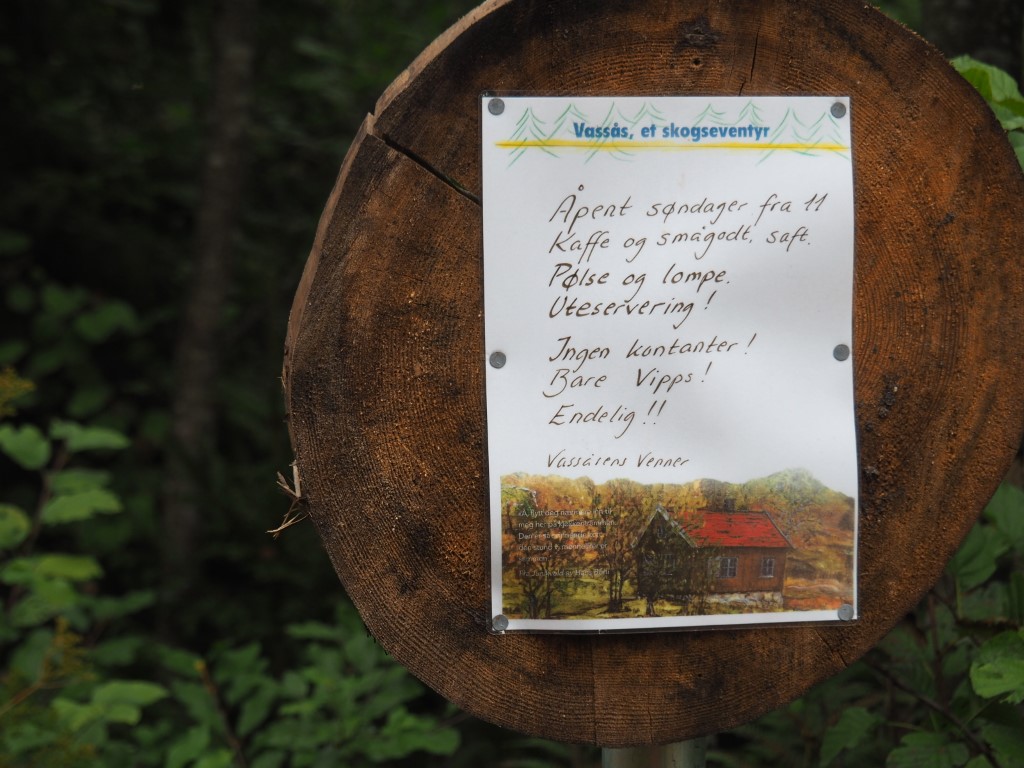 Vassås, et skogseventyr
Åpent søndager fra 11
Kaffe og smågodt, saft.
Pølse og lompe.
Uteservering!
Ingen kontanter!
Bare Vipps!
Endelig!!
Vassåsens Venner